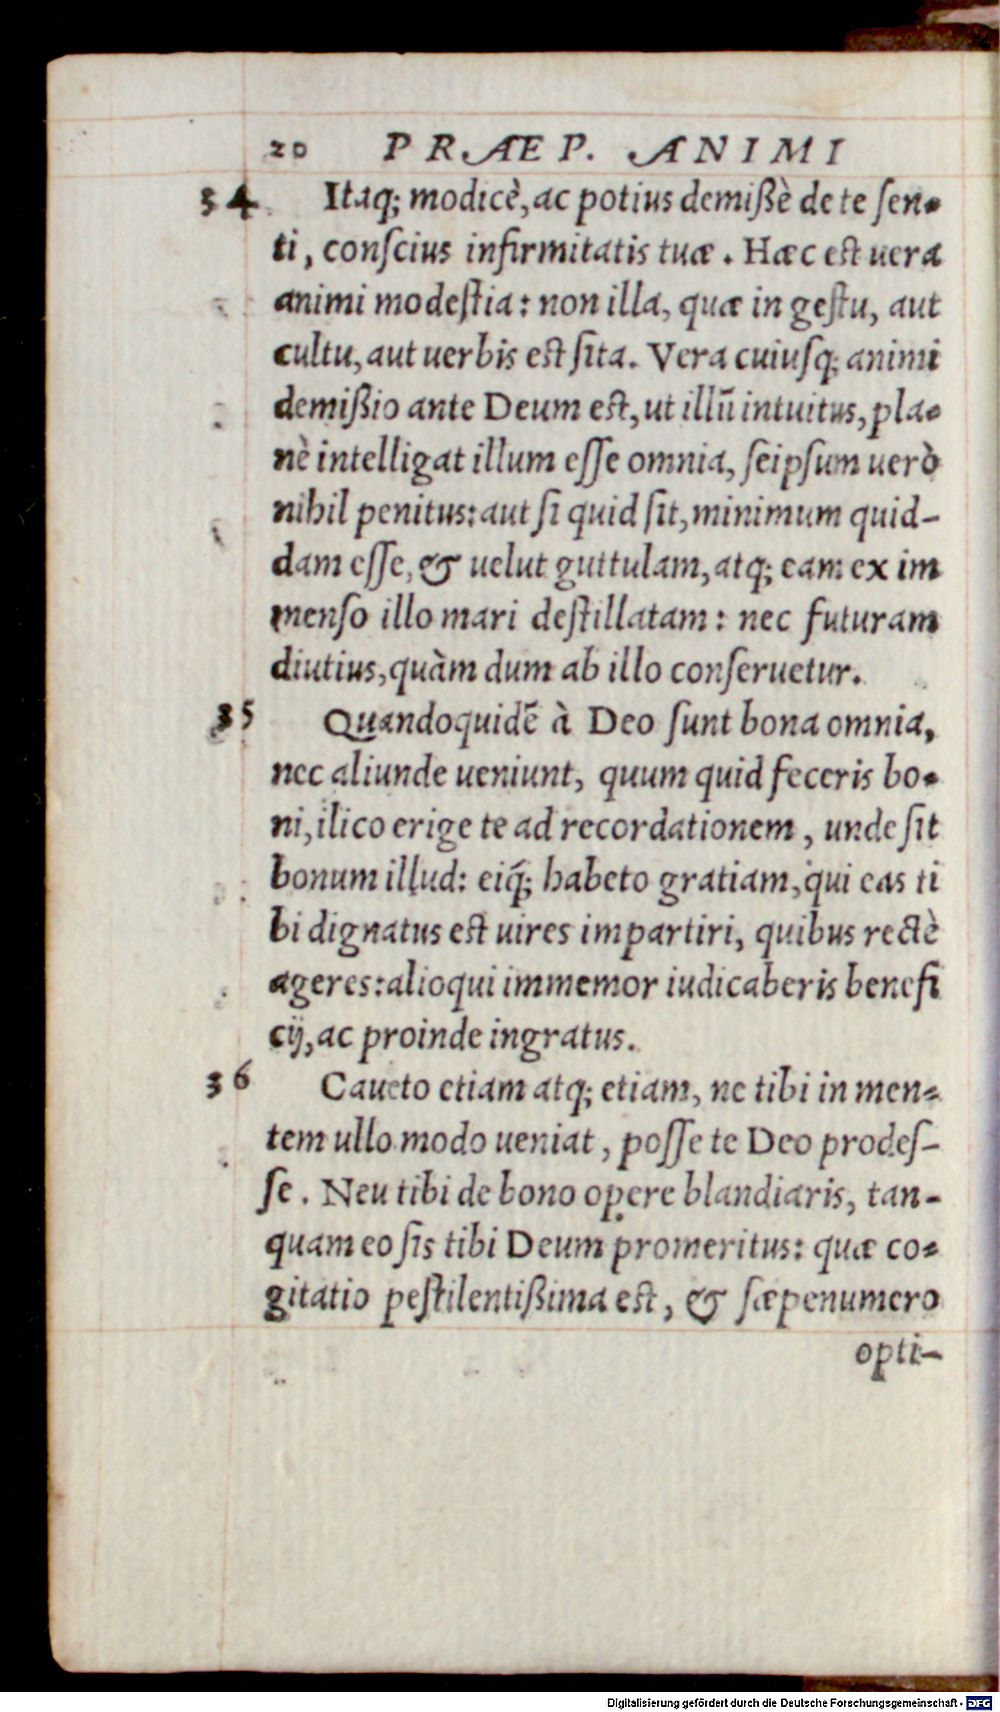 20 PRÆP. ANIMI
34 Itaq; modicè, ac potius demißè de te ſen-
ti, conſcius infirmitatis tuæ. Hæc est uera
animi modeſtia: non illa, quæ in geſtu, aut
cultu, aut uerbis est ſita. Vera cuiuſq; animi
demißio ante Deum est, ut illū intuitus, pla-
nè intelligat illum eſſe omnia, ſeipſum uerò
nihil penitus: aut ſi quid ſit, minimum quid-
dam eſſe, & uelut guttulam, atq; eam ex im
menſo illo mari deſtillatam: nec futuram
diutius, quàm dum ab illo conſeruetur.
35 Quandoquidē à Deo ſunt bona omnia,
nec aliunde ueniunt, quum quid feceris bo-
ni, ilico erige te ad recordationem, unde ſit
bonum illud: eiq̃; habeto gratiam, qui eas ti
bi dignatus est uires impartiri, quibus rectè
ageres: alioqui immemor iudicaberis benefi
cij, ac proinde ingratus.
36 Caueto etiam atq; etiam, ne tibi in men-
tem ullo modo ueniat, poſſe te Deo prodeſ-
ſe. Neu tibi de bono opere blandiaris, tan-
quam eo ſis tibi Deum promeritus: quæ co-
gitatio peſtilentißima est, & ſæpenumero
opti-
Digitalisierung gefördert durch die Deutsche Forschungsgemeinschaft - DFG